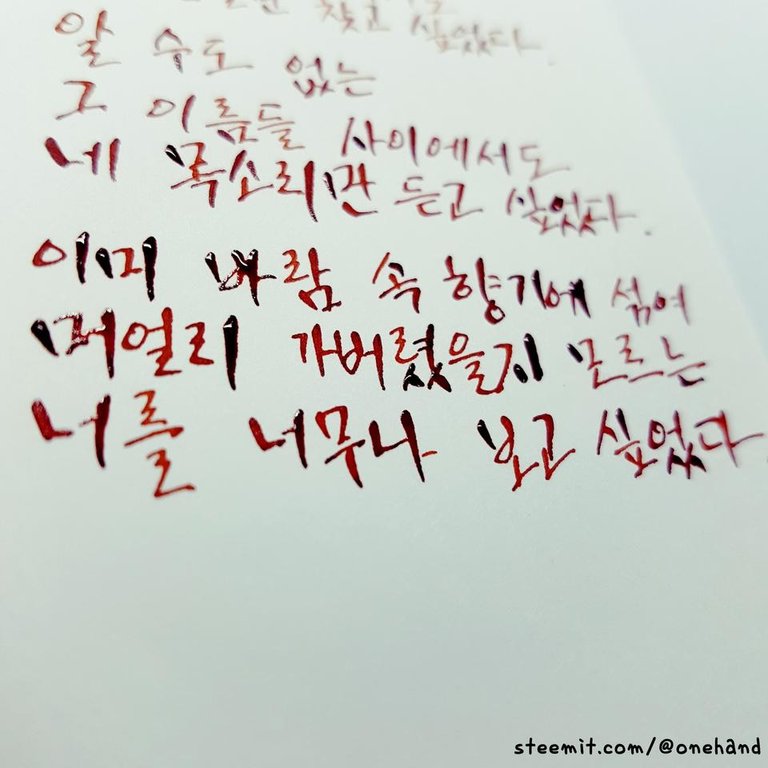 찾고 싶었다.
알 수도 없는
그 이름들 사이에서도
네 목소리만 듣고 싶었다.
이미 바람 속 향기에 섞여
머얼리 가버렸을지 모르는
너를 너무나 보고 싶었다.
steemit.com/@onehand